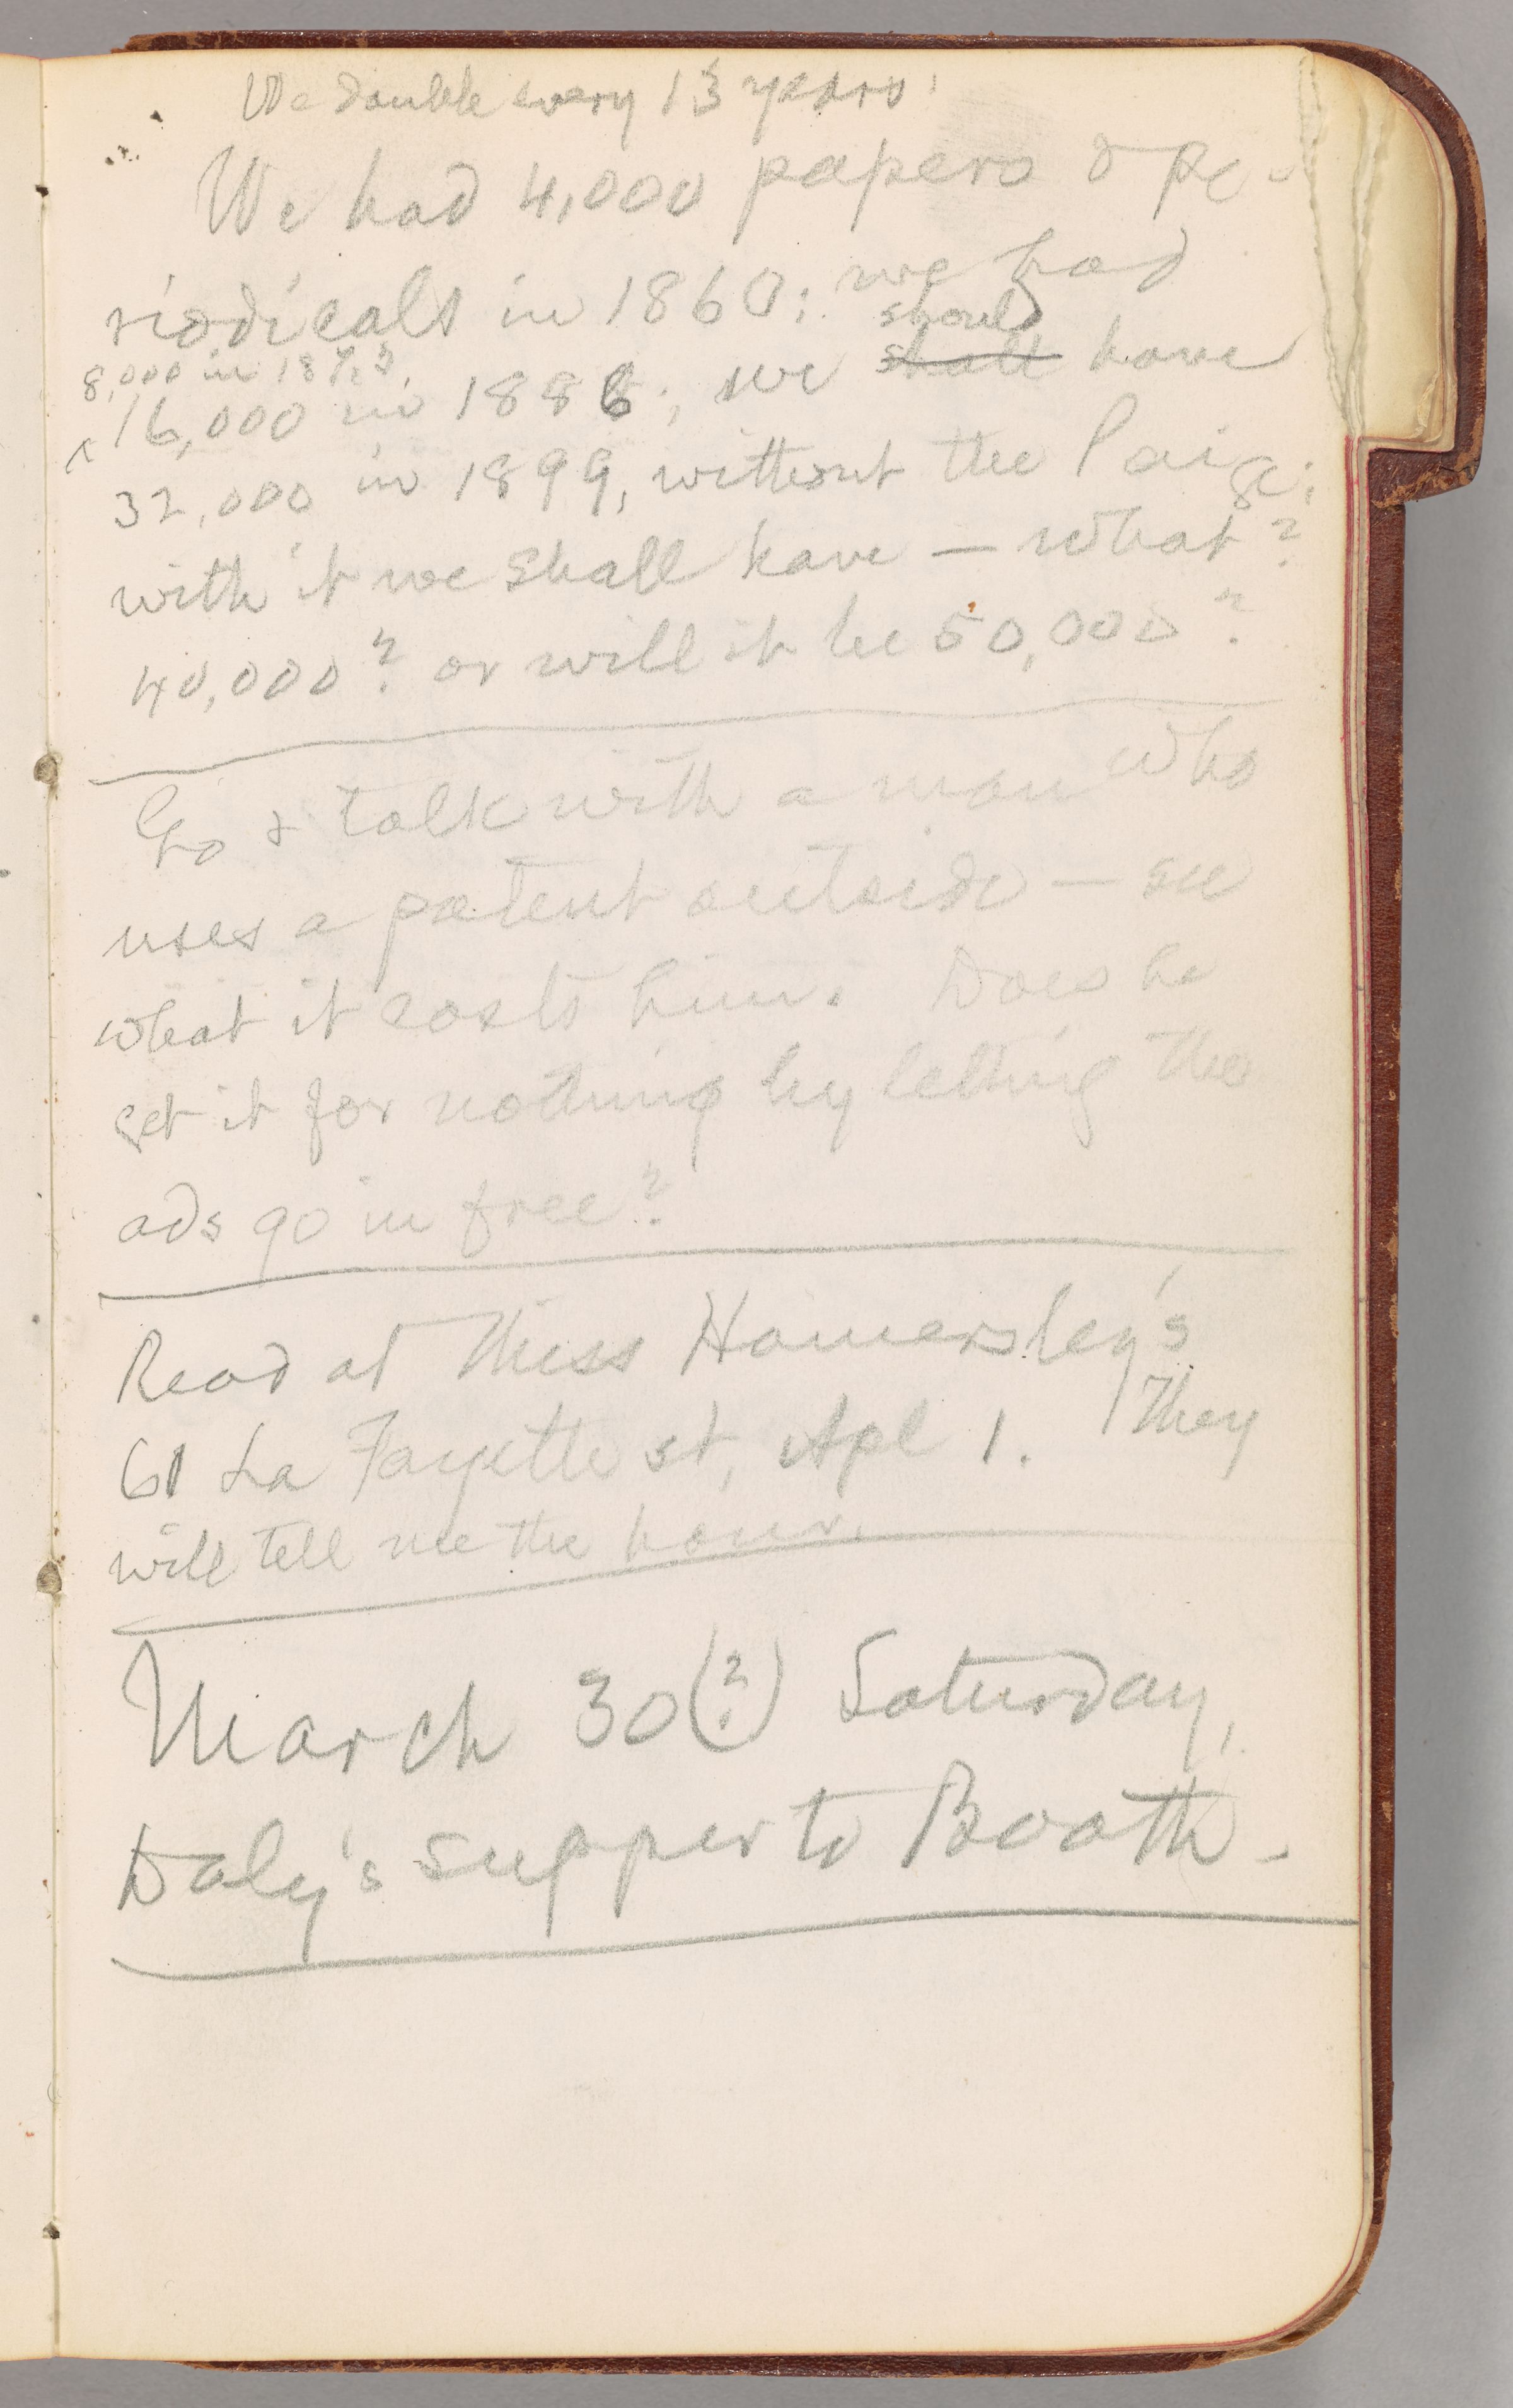 We double every 13 years.
We had 4,000 papers & pe-
riodicals in 1860; we had
8,000 in 1873,
16,000 in 1886; we should shall have
32,000 in 1899, without the Paige;
with it we shall have — what?
40,000? or will it be 50,000?
Go & talk with a man who
uses a patent outside — see
what it costs him. Does he
get it for nothing by letting the
ads go in free?
Read at Miss Hamersley's
61 La Fayette st, Apl 1. They
will tell me the hour.
March 30(?) Saturday,
Daly's supper to Booth.